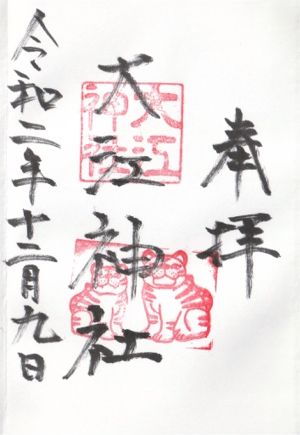 奉拝
大江神社
大江神社
令和二年十二月九日